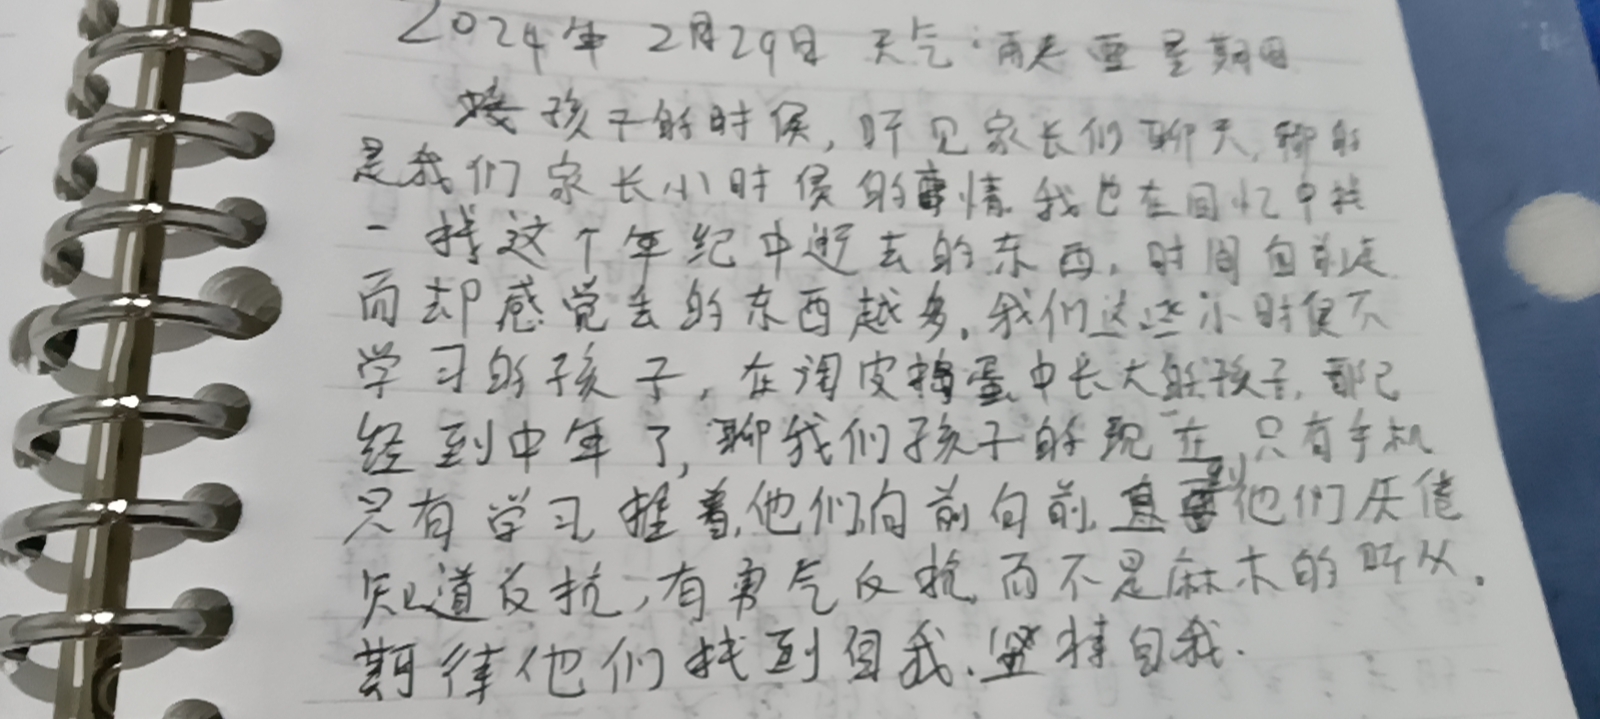 2024年2月29日 天气:雨夹雪 星期四
接孩子的时候,听见家长们聊天,聊的
是我们家长小时候的事情.我也在回忆中找
一找这个年纪中逝去的东西,时间向前走
而却感觉丢的东西越多,我们这些小时候不
学习的孩子,在淘皮捣蛋中长大的孩子,都已
经到中年了,聊我们孩子的现在,只有手机
只有学习,推着他们向前向前,直到他们厌倦
知道反抗,有勇气反抗,而不是麻木的听从.
期待他们找到自我.坚持自我.